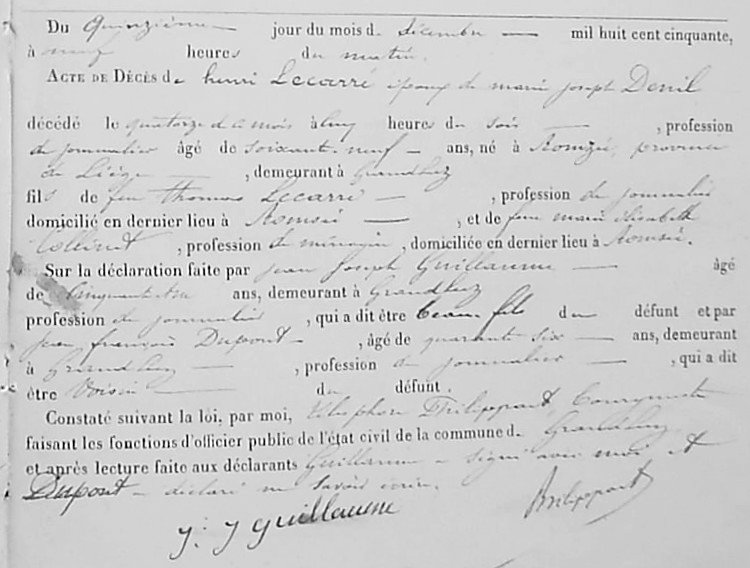 Du Quinzième jour du mois de Décembre mil huit cent cinquante,
à neuf heures du matin.
Acte de Décès de henri Lecarré époux de marie joseph Denil
décédé le quatorze de ce mois à heures du soir , profession
de journalier âgé de soixante neuf ans, né à Romsée, province
de Liège , demeurant à Grandluz
fils de feu thomas Lecarré , profession de journalier
domicilié en dernier lieu à Romsée , et de feue marie élisabeth
Collinet , profession de ménagère , domiciliée en dernier lieu à Romsée.
Sur la déclaration faite par jean joseph Guillaume âgé
de cinquante ans, demeurant à Grandluz
profession de journalier , qui a dit être beau fils du défunt et par
jean françois Dupont , âgé de quarante six ans, demeurant
à Grandluz , profession de journalier , qui a dit
être Voisin du défunt .
Constaté suivant la loi, par moi, Philippart, Bourgmestre
faisant les fonctions d'officier public de l'état civil de la commune de Grandluz
et après lecture faite aux déclarants Guillaume a signé avec moi et
Dupont a déclaré ne savoir écrire.
J: J Guillaume Philippart